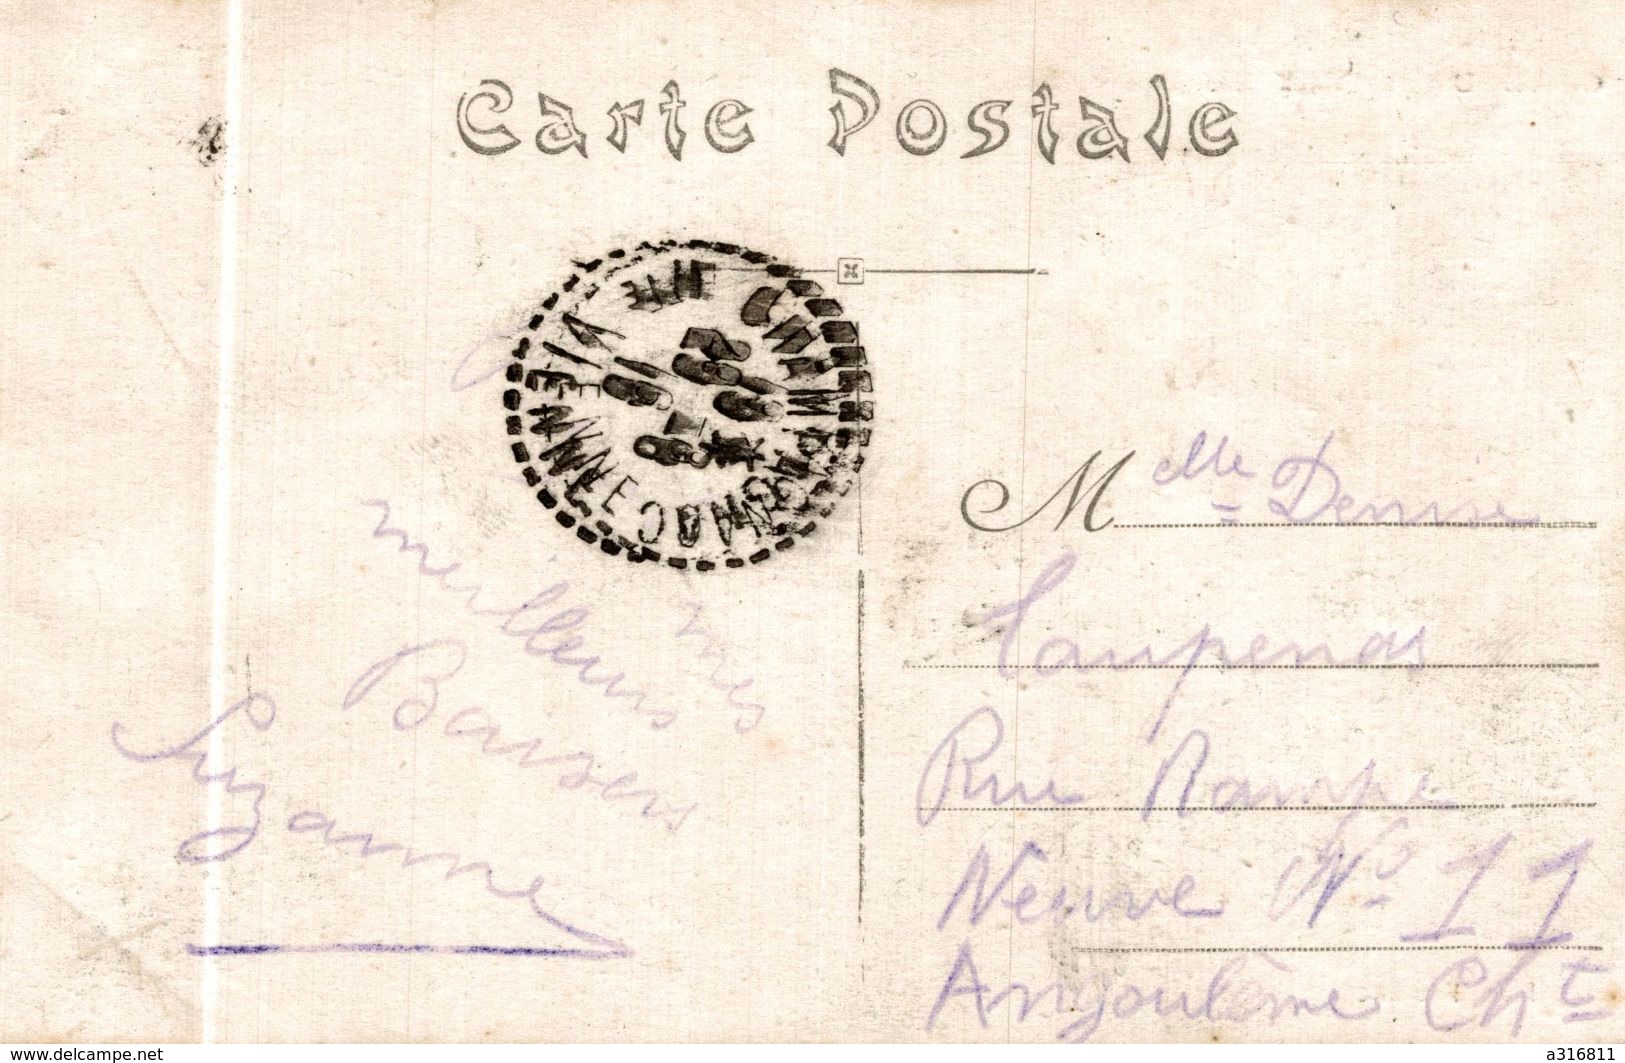 Carte Postale
mes
meilleurs
Baisers
Suzanne
Melle Denise
Taupenas
Rue Rampe
Neuve N° 11
Angoulême Chte
www.delcampe.net
a316811